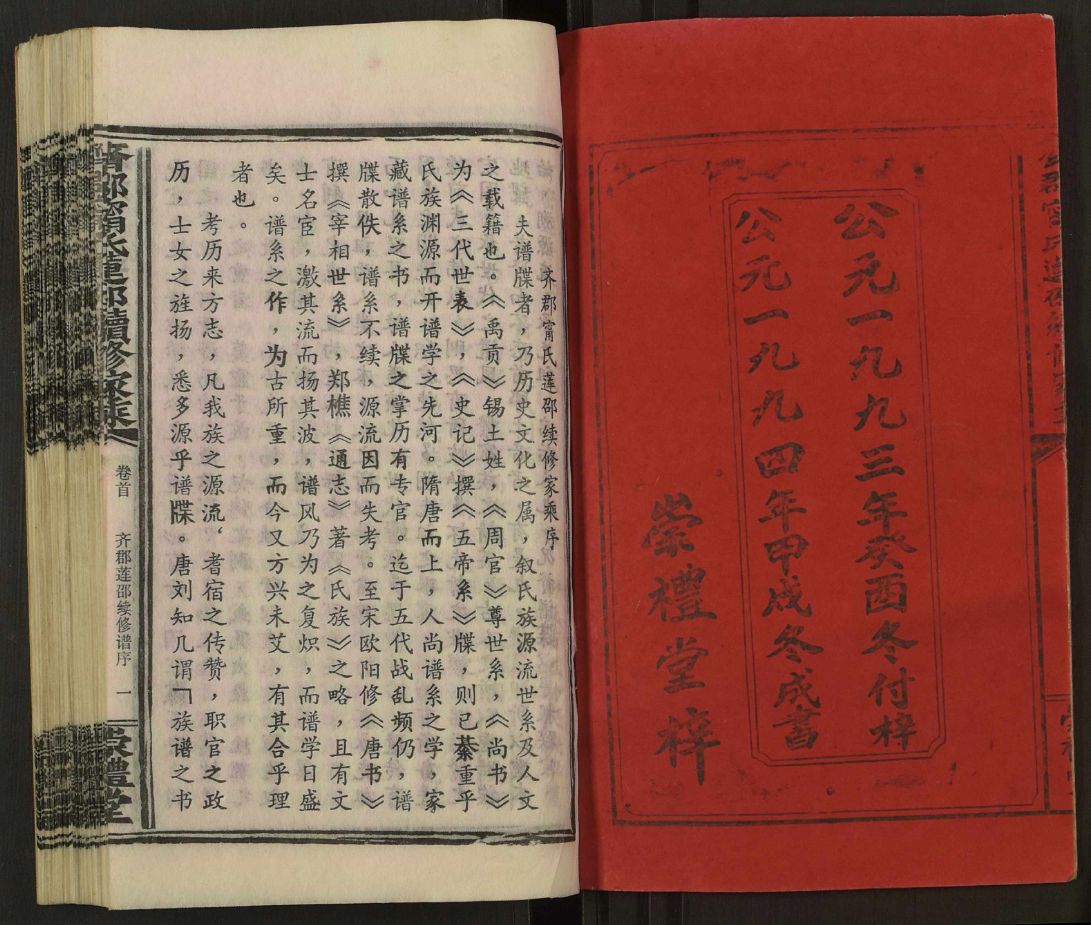 公元一九九三年癸酉冬付梓
公元一九九四年甲戌冬成書
崇禮堂梓
齐郡甯氏莲邵续修家乘序
夫谱牒者，乃历史文化之属，叙氏族源流世系及人文
之载籍也。《禹贡》锡土姓，《周官》尊世系，《尚书》
为《三代世表》，《史记》撰《五帝系》牒，则已綦重乎
氏族渊源而开谱学之先河。隋唐而上，人尚谱系之学，家
藏谱系之书，谱牒之掌历有专官。迄于五代战乱频仍，谱
牒散佚，谱系不续，源流因而失考。至宋欧阳修《唐书》
撰《宰相世系》，郑樵《通志》著《氏族》之略，且有文
士名宦，激其流而扬其波，谱风乃为之复炽，而谱学日盛
矣。谱系之作，为古所重，而今又方兴未艾，有其合乎理
者也。
考历来方志，凡我族之源流，耆宿之传赞，职官之政
历，士女之旌扬，悉多源乎谱牒。唐刘知几谓「族谱之书
齊郡甯氏蓮邵續修家乘
卷首
齐郡莲邵续修谱序
一
崇禮堂